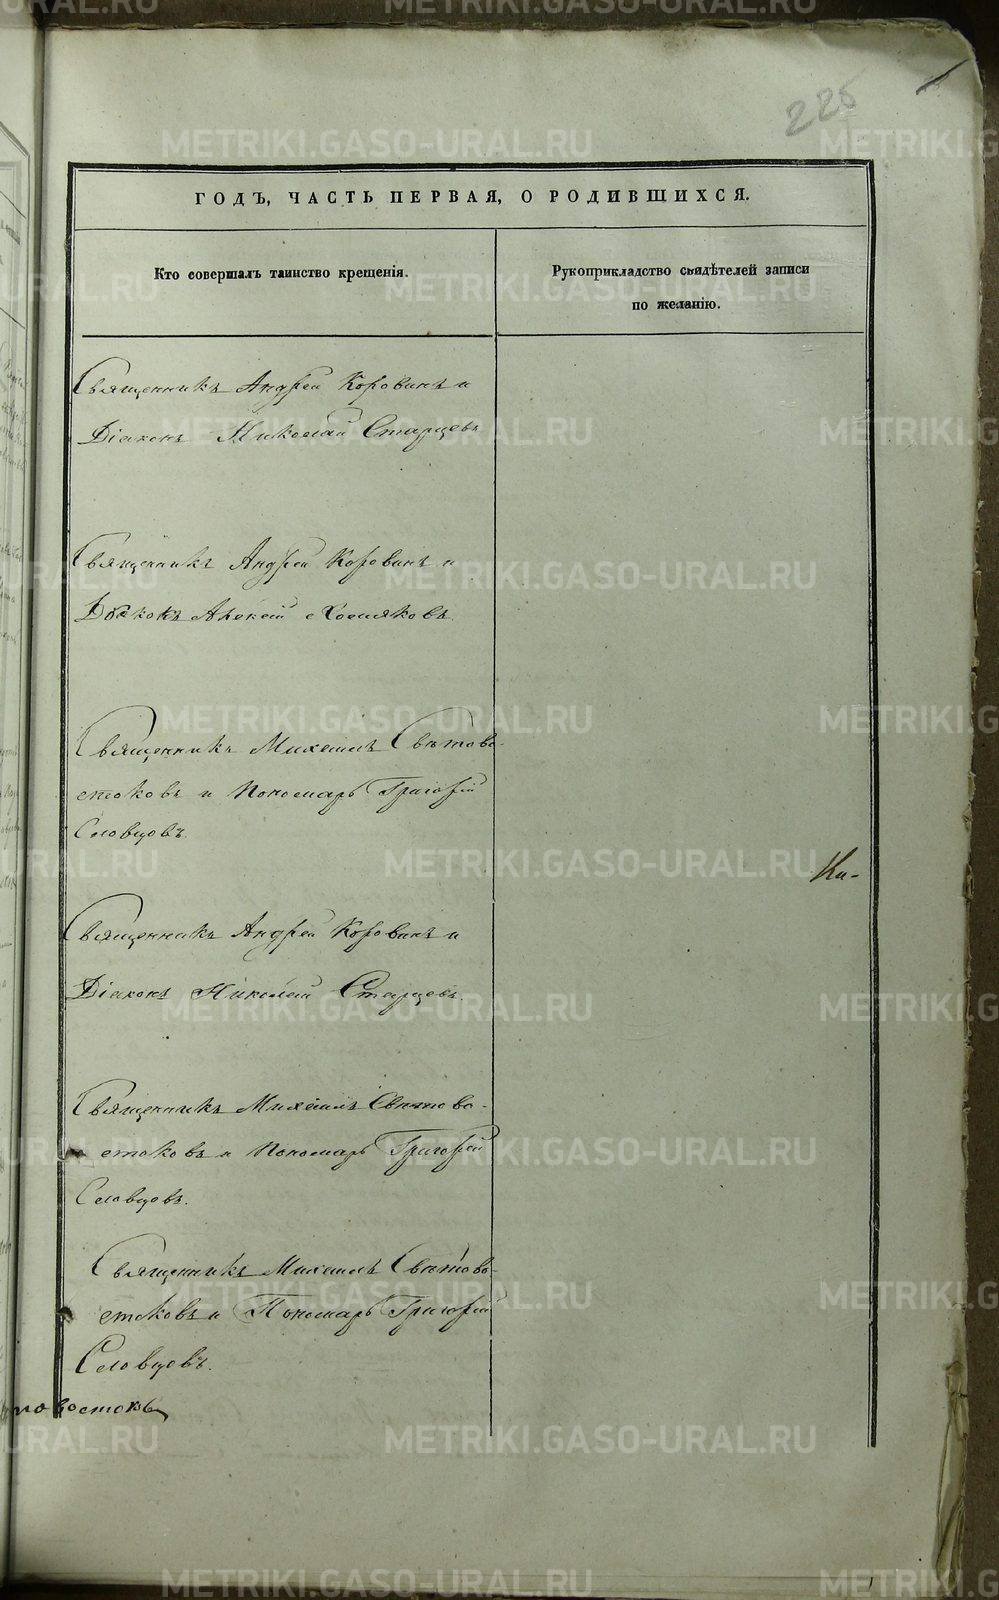 225
ГОДЪ, ЧАСТЬ ПЕРВАЯ, О РОДИВШИХСЯ.
Кто совершалъ таинство крещенія.
Рукоприкладство свидѣтелей записи
по желанію.
Священникъ Андрей Коровинъ и
Діаконъ Николай Старцевъ
Священникъ Андрей Коровинъ и
Алексій Хомяковъ.
Священникъ Михаилъ Свѣтово-
стоковъ и Пономарь Григорій
Словцовъ.
Ка-
Священникъ Андрей Коровинъ и
Діаконъ Николай Старцевъ.
Священникъ Михаилъ Свѣтово-
стоковъ и Пономарь Григорій
Словцовъ.
Священникъ Михаилъ Свѣтово-
стоковъ и Пономарь Григорій
Словцовъ.
METRIKI.GASO-URAL.RU